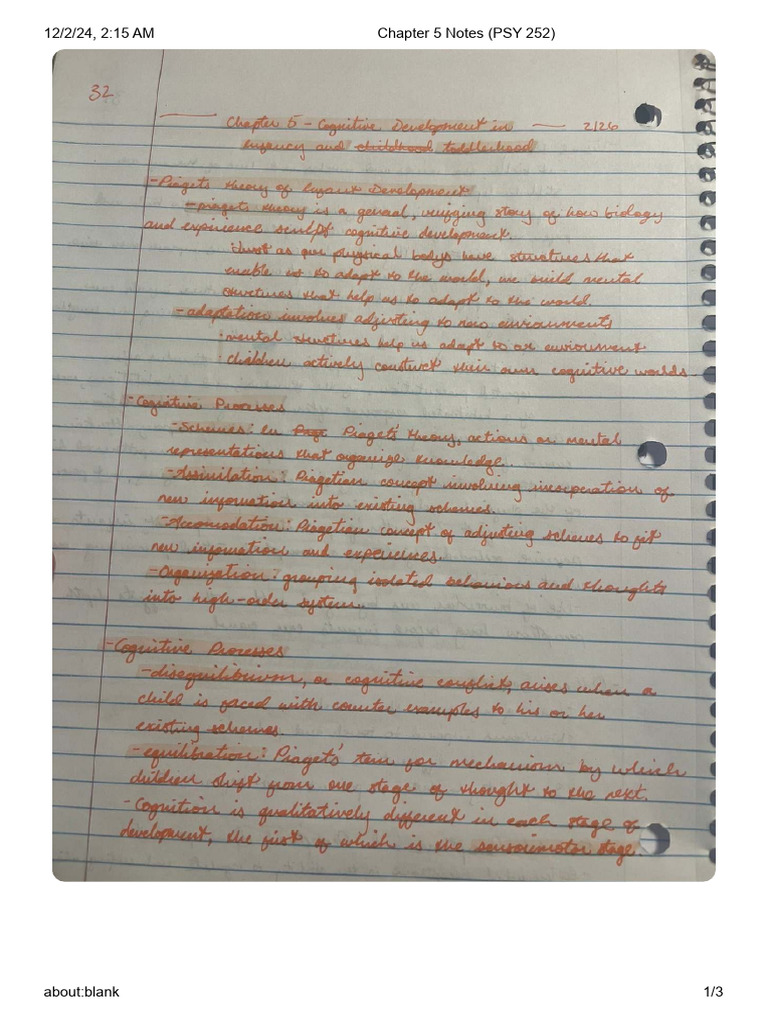 12/2/24, 2:15 AM Chapter 5 Notes (PSY 252)
32
Chapter 5 - Cognitive Development in 2/26
infancy and childhood toddlerhood
- Piagets theory of Infant Development
- piagets theory is a general, unifying story of how biology
and experience sculpt cognitive development.
Just as our physical bodys have structures that
enable us to adapt to the world, we build mental
structures that help us to adapt to the world.
- adaptation involves adjusting to new environments
mental structures help us adapt to an environment
children actively construct their own cognitive worlds
- Cognitive Processes
- Schemes: In Piagets' theory, actions or mental
representations that organize knowledge.
- Assimilation: Piagetian concept involving incorporation of
new information into existing schemes.
- Accomodation: Piagetian concept of adjusting schemes to fit
new information and experiences.
- Organization: grouping isolated behaviors and thoughts
into high-order system.
- Cognitive Processes
- disequilibrium, or cognitive conflict, arises when a
child is faced with counter examples to his or her
existing schemes.
- equilibration: Piaget's term for mechanism by which
children shift from one stage of thought to the next.
- Cognition is qualitatively different in each stage of
development, the first of which is the sensorimotor stage.
about:blank 1/3